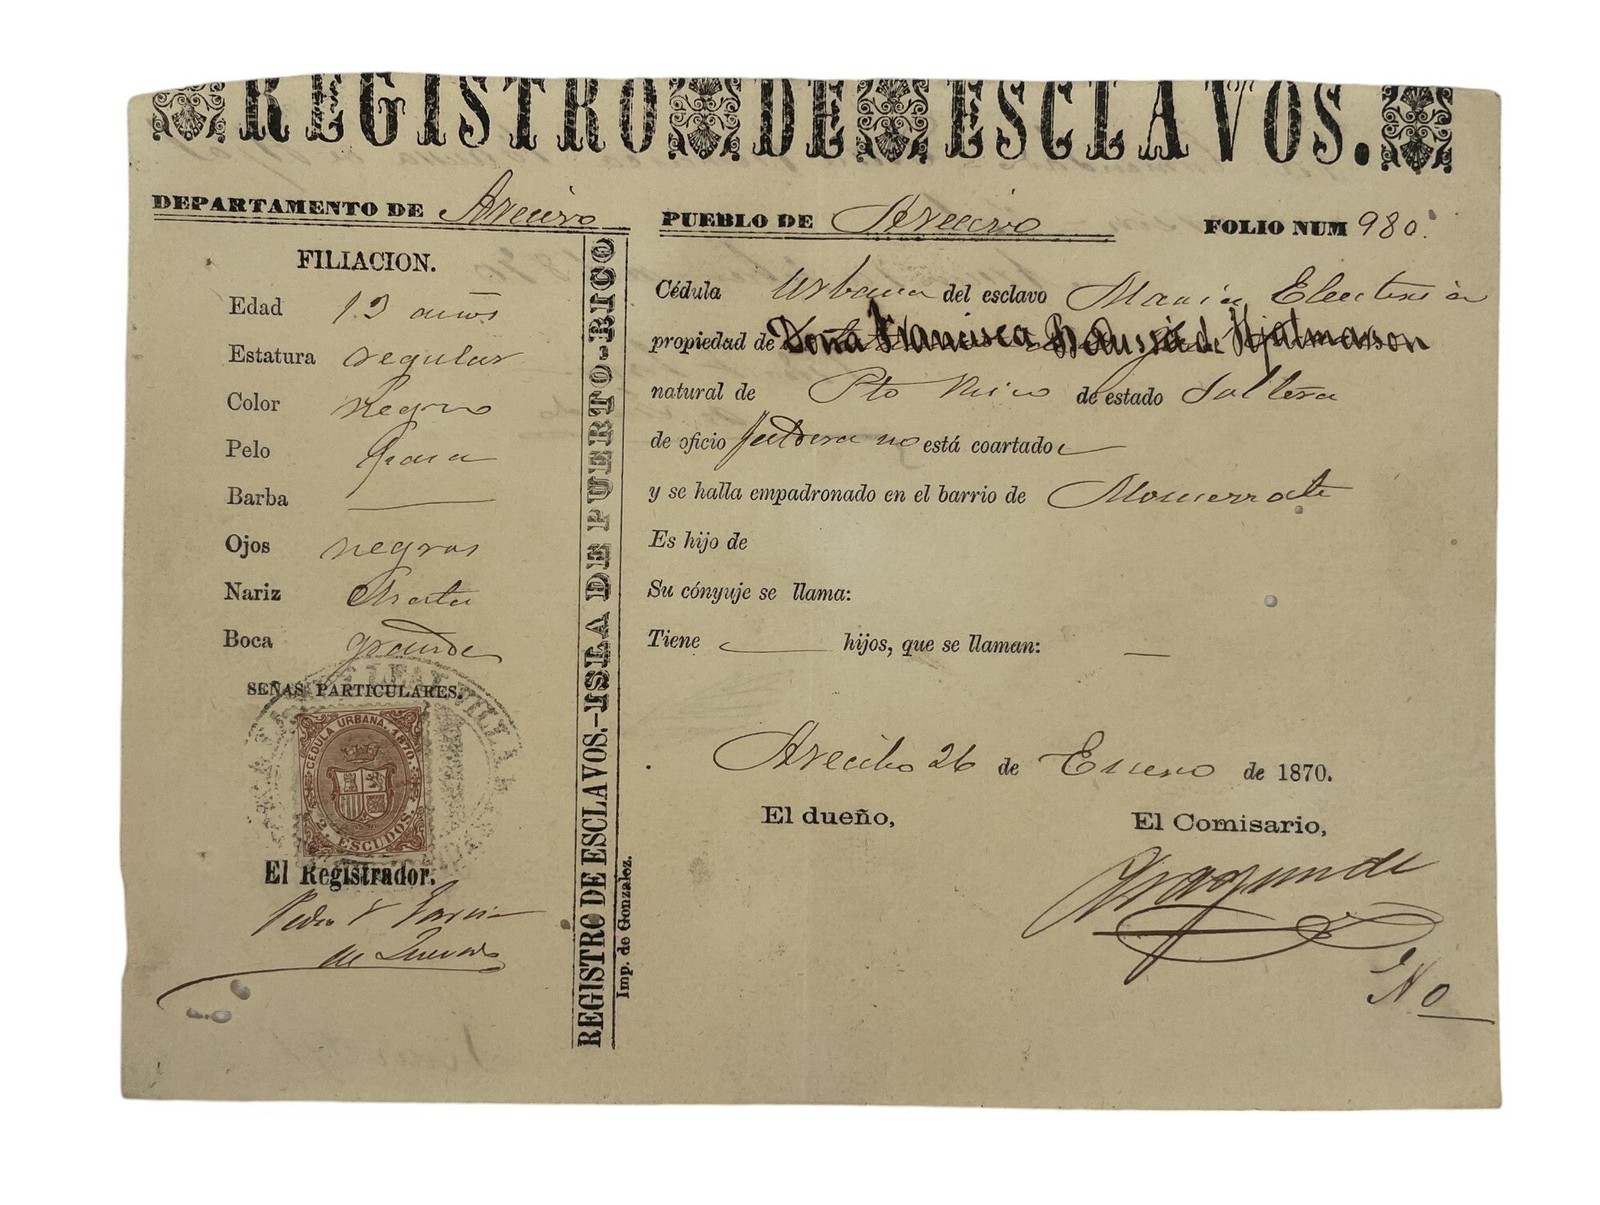 REGISTRO DE ESCLAVOS.
DEPARTAMENTO DE Arecivo
PUEBLO DE Arecivo
FOLIO NUM 980.
FILIACION.
Edad 13 años
Estatura regular
Color Negro
Pelo Pasa
Barba
Ojos negros
Nariz Chata
Boca grande
SEÑAS PARTICULARES.
CEDULA URBANA. 1870.
2 ESCUDOS.
El Registrador.
Pedro Garcia
de Quevedo
REGISTRO DE ESCLAVOS.-ISLA DE PUERTO-RICO
Imp. de Gonzalez.
Cédula Urbana del esclavo Maria Eleuteria
propiedad de Doña Francisca de Hjalmarson
natural de Pto Rico de estado Soltera
de oficio no está coartado
y se halla empadronado en el barrio de Monserrate
Es hijo de
Su cónyuje se llama:
Tiene hijos, que se llaman:
Arecibo 26 de Enero de 1870.
El dueño,
El Comisario,
No